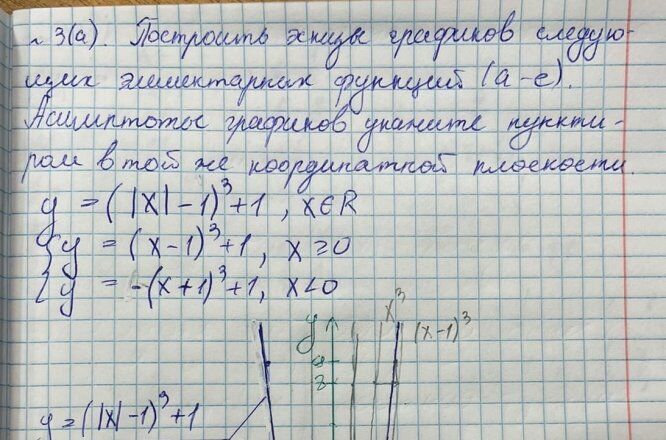 № 3(а). Построить эскизы графиков следую-
щих элементарных функций (а-е).
Асимптоты графиков укажите пункти-
ром в той же координатной плоскости.
y = (|x|-1)³+1, x∈R
{ y = (x-1)³+1, x≥0
{ y = -(x+1)³+1, x<0
y
x³
(x-1)³
3
y=(|x|-1)³+1